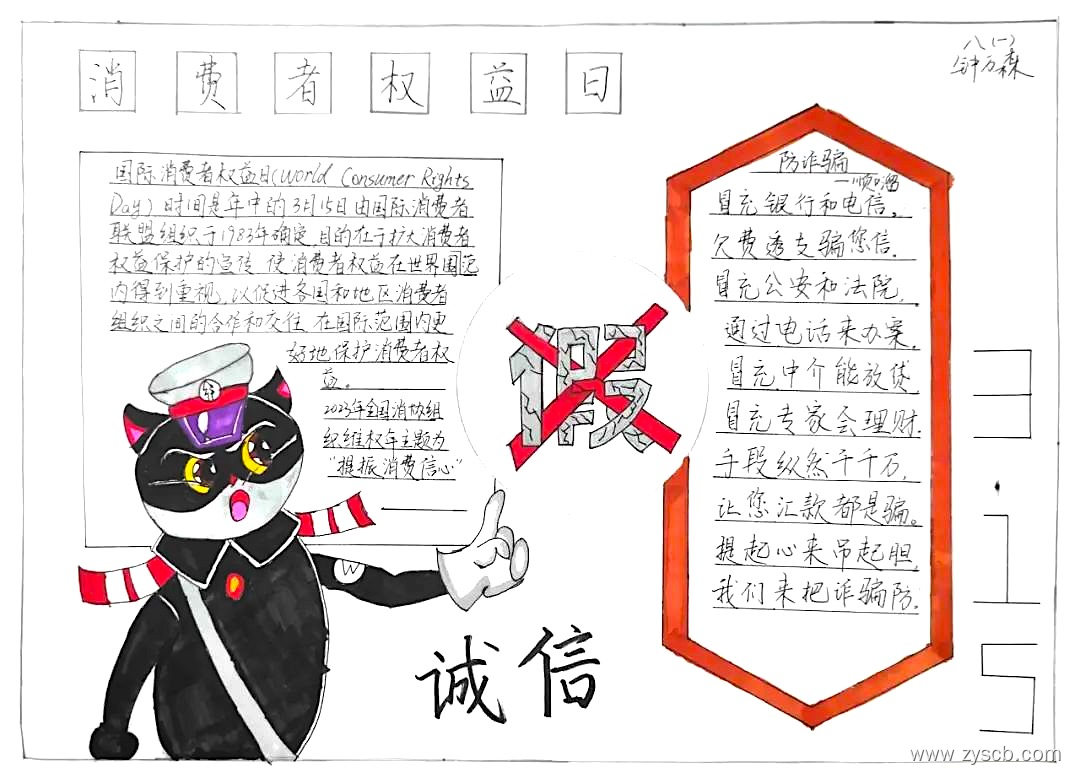 消费者权益日
八(一)
钟万森
国际消费者权益日(World Consumer Rights
Day) 时间是年中的3月15日由国际消费者
联盟组织于1983年确定,目的在于扩大消费者
权益保护的宣传,使消费者权益在世界国范
内得到重视,以促进各国和地区消费者
组织之间的合作和交往,在国际范围内更
好地保护消费者权
益。
2023年全国消协组
织维权年主题为
“提振消费信心”
假
诚信
防诈骗
一顺口溜
冒充银行和电信。
欠费透支骗您信.
冒充公安和法院,
通过电话来办案,
冒充中介能放贷,
冒充专家会理财.
手段纵然千千万,
让您汇款都是骗。
提起心来吊起胆,
我们来把诈骗防.
3·15
www.zyscb.com